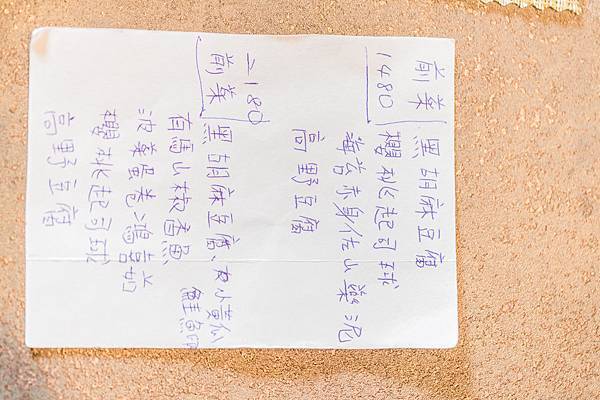 前菜 黑胡麻豆腐
1480 櫻桃起司球
海苔赤身佐山藥泥
高野豆腐
2180
前菜 黑胡麻豆腐、小黃瓜
鮭魚卵
有馬山椒香魚
波菜蛋卷、鴻喜菇
櫻桃起司球
高野豆腐